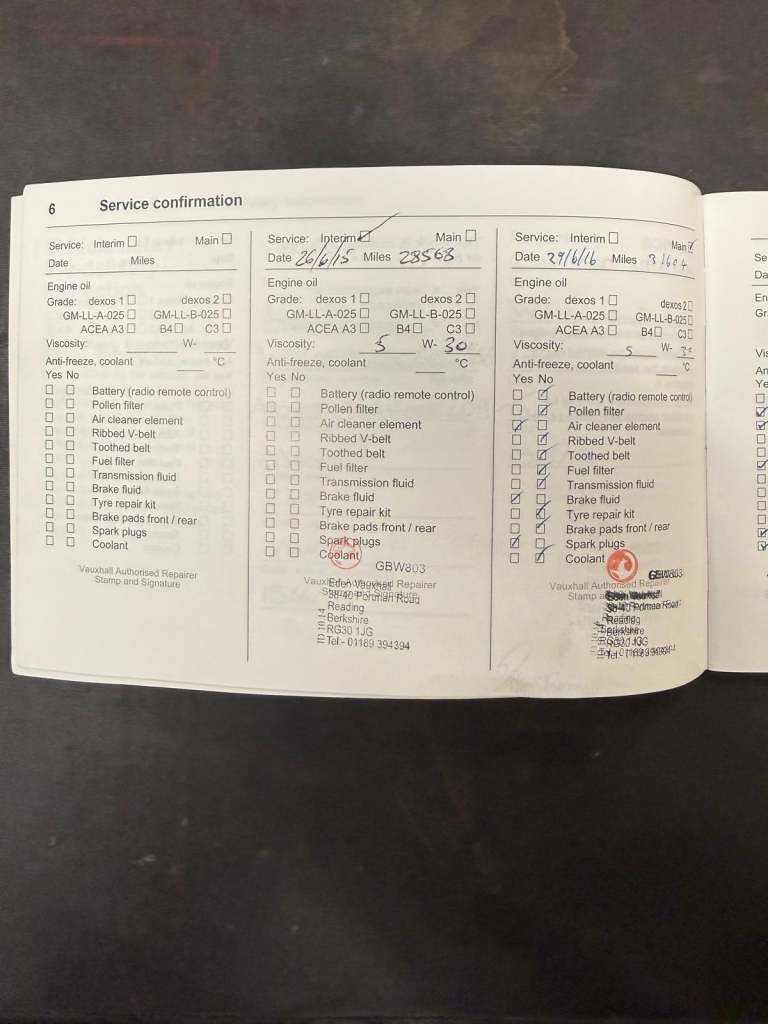 6 Service confirmation
Service: Interim Main
Date Miles
Engine oil
Grade: dexos 1 dexos 2
GM-LL-A-025 GM-LL-B-025
ACEA A3 B4 C3
Viscosity: W-
Anti-freeze, coolant °C
Yes No
Battery (radio remote control)
Pollen filter
Air cleaner element
Ribbed V-belt
Toothed belt
Fuel filter
Transmission fluid
Brake fluid
Tyre repair kit
Brake pads front / rear
Spark plugs
Coolant
Vauxhall Authorised Repairer
Stamp and Signature
Service: Interim Main
Date 26/6/15 Miles 28568
Engine oil
Grade: dexos 1 dexos 2
GM-LL-A-025 GM-LL-B-025
ACEA A3 B4 C3
Viscosity: 5 W- 30
Anti-freeze, coolant °C
Yes No
Battery (radio remote control)
Pollen filter
Air cleaner element
Ribbed V-belt
Toothed belt
Fuel filter
Transmission fluid
Brake fluid
Tyre repair kit
Brake pads front / rear
Spark plugs
Coolant
GBW803
Vauxhall Authorised Repairer
Eden Vauxhall
Stamp and Signature
38-40 Portman Road
Reading
Berkshire
RG30 1JG
Tel:- 01189 394394
Service: Interim Main
Date 29/6/16 Miles
Engine oil
Grade: dexos 1 dexos 2
GM-LL-A-025 GM-LL-B-025
ACEA A3 B4 C3
Viscosity: 5 W- 30
Anti-freeze, coolant °C
Yes No
Battery (radio remote control)
Pollen filter
Air cleaner element
Ribbed V-belt
Toothed belt
Fuel filter
Transmission fluid
Brake fluid
Tyre repair kit
Brake pads front / rear
Spark plugs
Coolant
GBW803
Vauxhall Authorised Repairer
Stamp
Reading
Berkshire
RG30 1JG